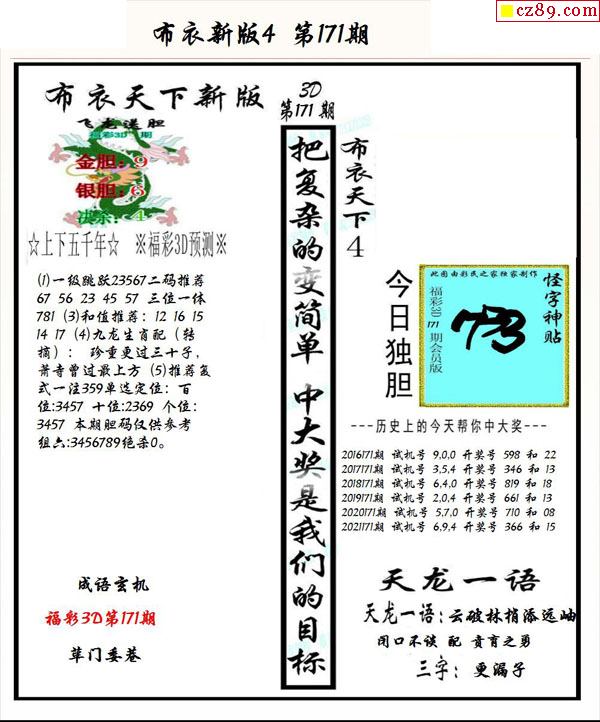 cz89.com
布衣新版4 第171期
布衣天下新版
飞龙送胆
福彩3D 期
金胆：9
银胆：6
决杀：4
☆上下五千年☆ ※福彩3D预测※
⑴一级跳跃23567二码推荐
67 56 23 45 57 三位一体
781 ⑶和值推荐：12 16 15
14 17 ⑷九龙生肖配（转
摘）： 珍重更过三十子，
萧音曾过最上方 ⑸推荐复
式一注359单选定位：百
位:3457 十位:2369 个位：
3457 本期胆码仅供参考
组六:3456789绝杀0。
成语玄机
福彩3D第171期
荜门委巷
3D
第171 期
把复杂的变简单 中大奖是我们的目标
布衣天下4
今日独胆
此图由彩民之家独家制作
福彩3D 171 期会员版
怪字神贴
---历史上的今天帮你中大奖---
2016171期 试机号 9,0,0 开奖号 598 和 22
2017171期 试机号 3,5,4 开奖号 346 和 13
2018171期 试机号 6,4,0 开奖号 819 和 18
2019171期 试机号 2,0,4 开奖号 661 和 13
2020171期 试机号 5,7,0 开奖号 710 和 08
2021171期 试机号 6,9,4 开奖号 366 和 15
天龙一语
天龙一语：云破林梢添远岫
闭口不谈 配 贲育之勇
三字： 更漏子